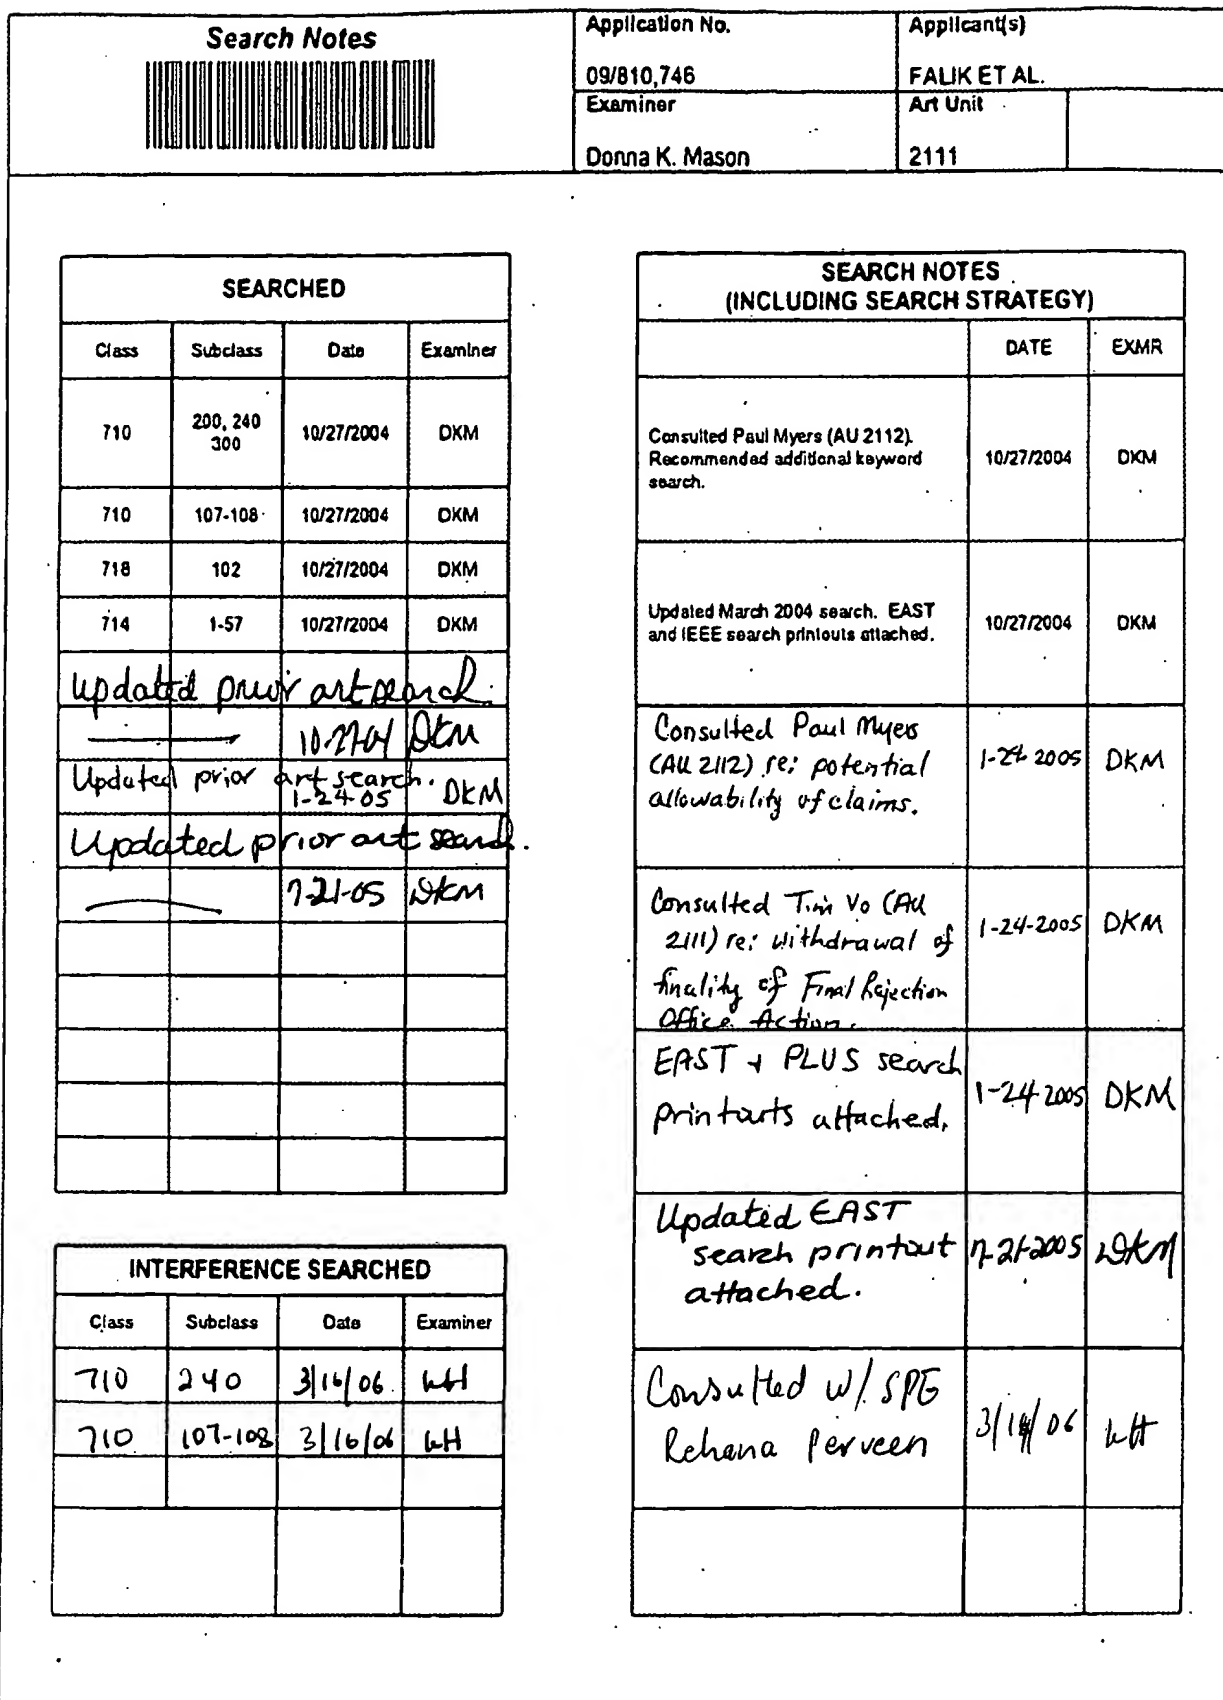 Search Notes
Application No.
09/810,746
Applicant(s)
FALIK ET AL.
Examiner
Donna K. Mason
Art Unit
2111
SEARCHED
Class Subclass Date Examiner
710 200, 240 300 10/27/2004 DKM
710 107-108 10/27/2004 DKM
718 102 10/27/2004 DKM
714 1-57 10/27/2004 DKM
Updated prior art search.
10-27-04 DKM
Updated prior art search.
1-24-05 DKM
Updated prior art search.
7-21-05 DKM
INTERFERENCE SEARCHED
Class Subclass Date Examiner
710 240 3/16/06
710 107-108 3/16/06
SEARCH NOTES
(INCLUDING SEARCH STRATEGY)
DATE EXMR
Consulted Paul Myers (AU 2112).
Recommended additional keyword
search.
10/27/2004 DKM
Updated March 2004 search. EAST
and IEEE search printouts attached.
10/27/2004 DKM
Consulted Paul Myers
(AU 2112) re: potential
allowability of claims.
1-24-2005 DKM
Consulted Tim Vo (AU
2111) re: withdrawal of
finality of Final Rejection
Office Action.
1-24-2005 DKM
EAST + PLUS search
printouts attached.
1-24-2005 DKM
Updated EAST
search printout
attached.
7-21-2005 DKM
Consulted w/ SPE
Rehana Perveen